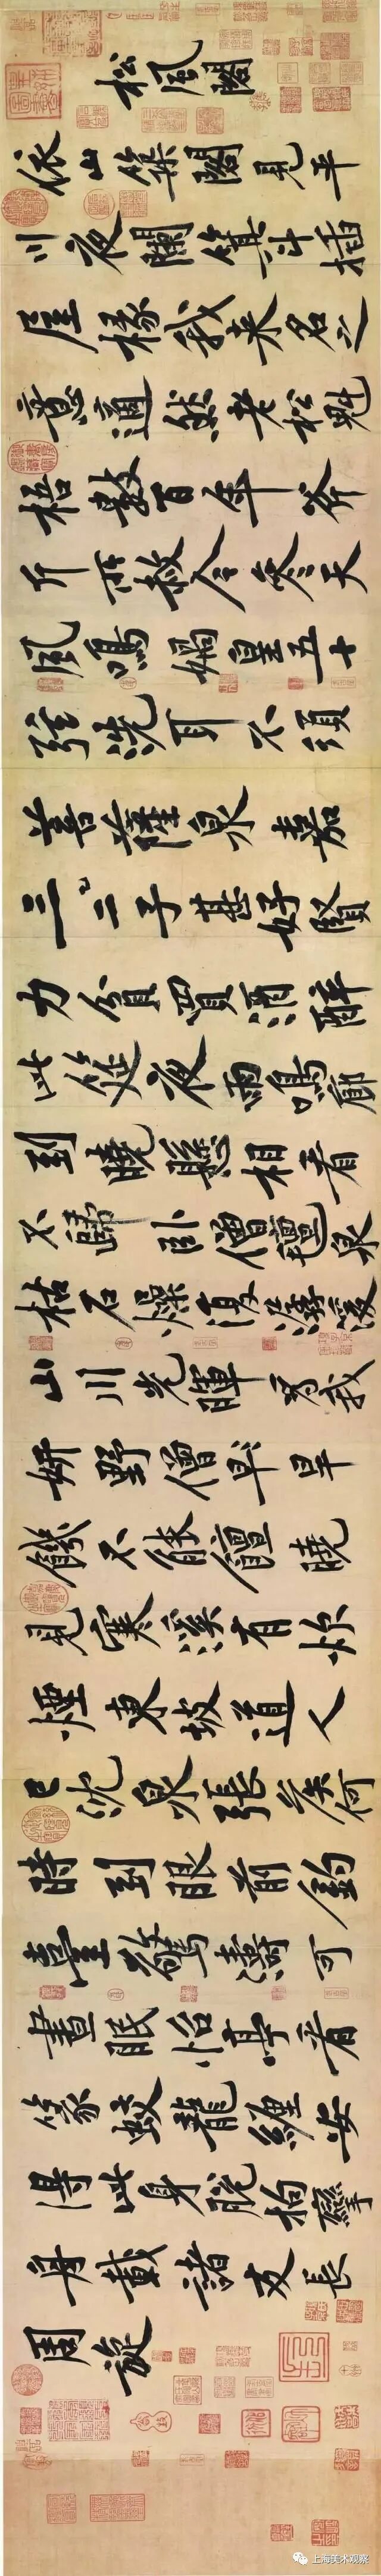 松風閣
依山築閣見平
川夜闌箕斗插
屋椽我來名之
意適然老松魁
梧數百年斧
斤所赦令參天
風鳴媧皇五十
弦洗耳不須
菩薩泉嘉
三二子甚好賢
力貧買酒醉
此筵夜雨鳴廊
到曉懸相看
不歸臥僧氈泉
枯石燥復潺湲
山川光暉為我
妍野僧旱早
飢不能饘曉
見寒溪有炊
煙東坡道人
已沈泉張侯何
時到眼前釣
臺驚濤可
晝眠怡亭看
篆蛟龍纏安
得此身脫拘攣
舟載諸友長
周旋
上海美术观察